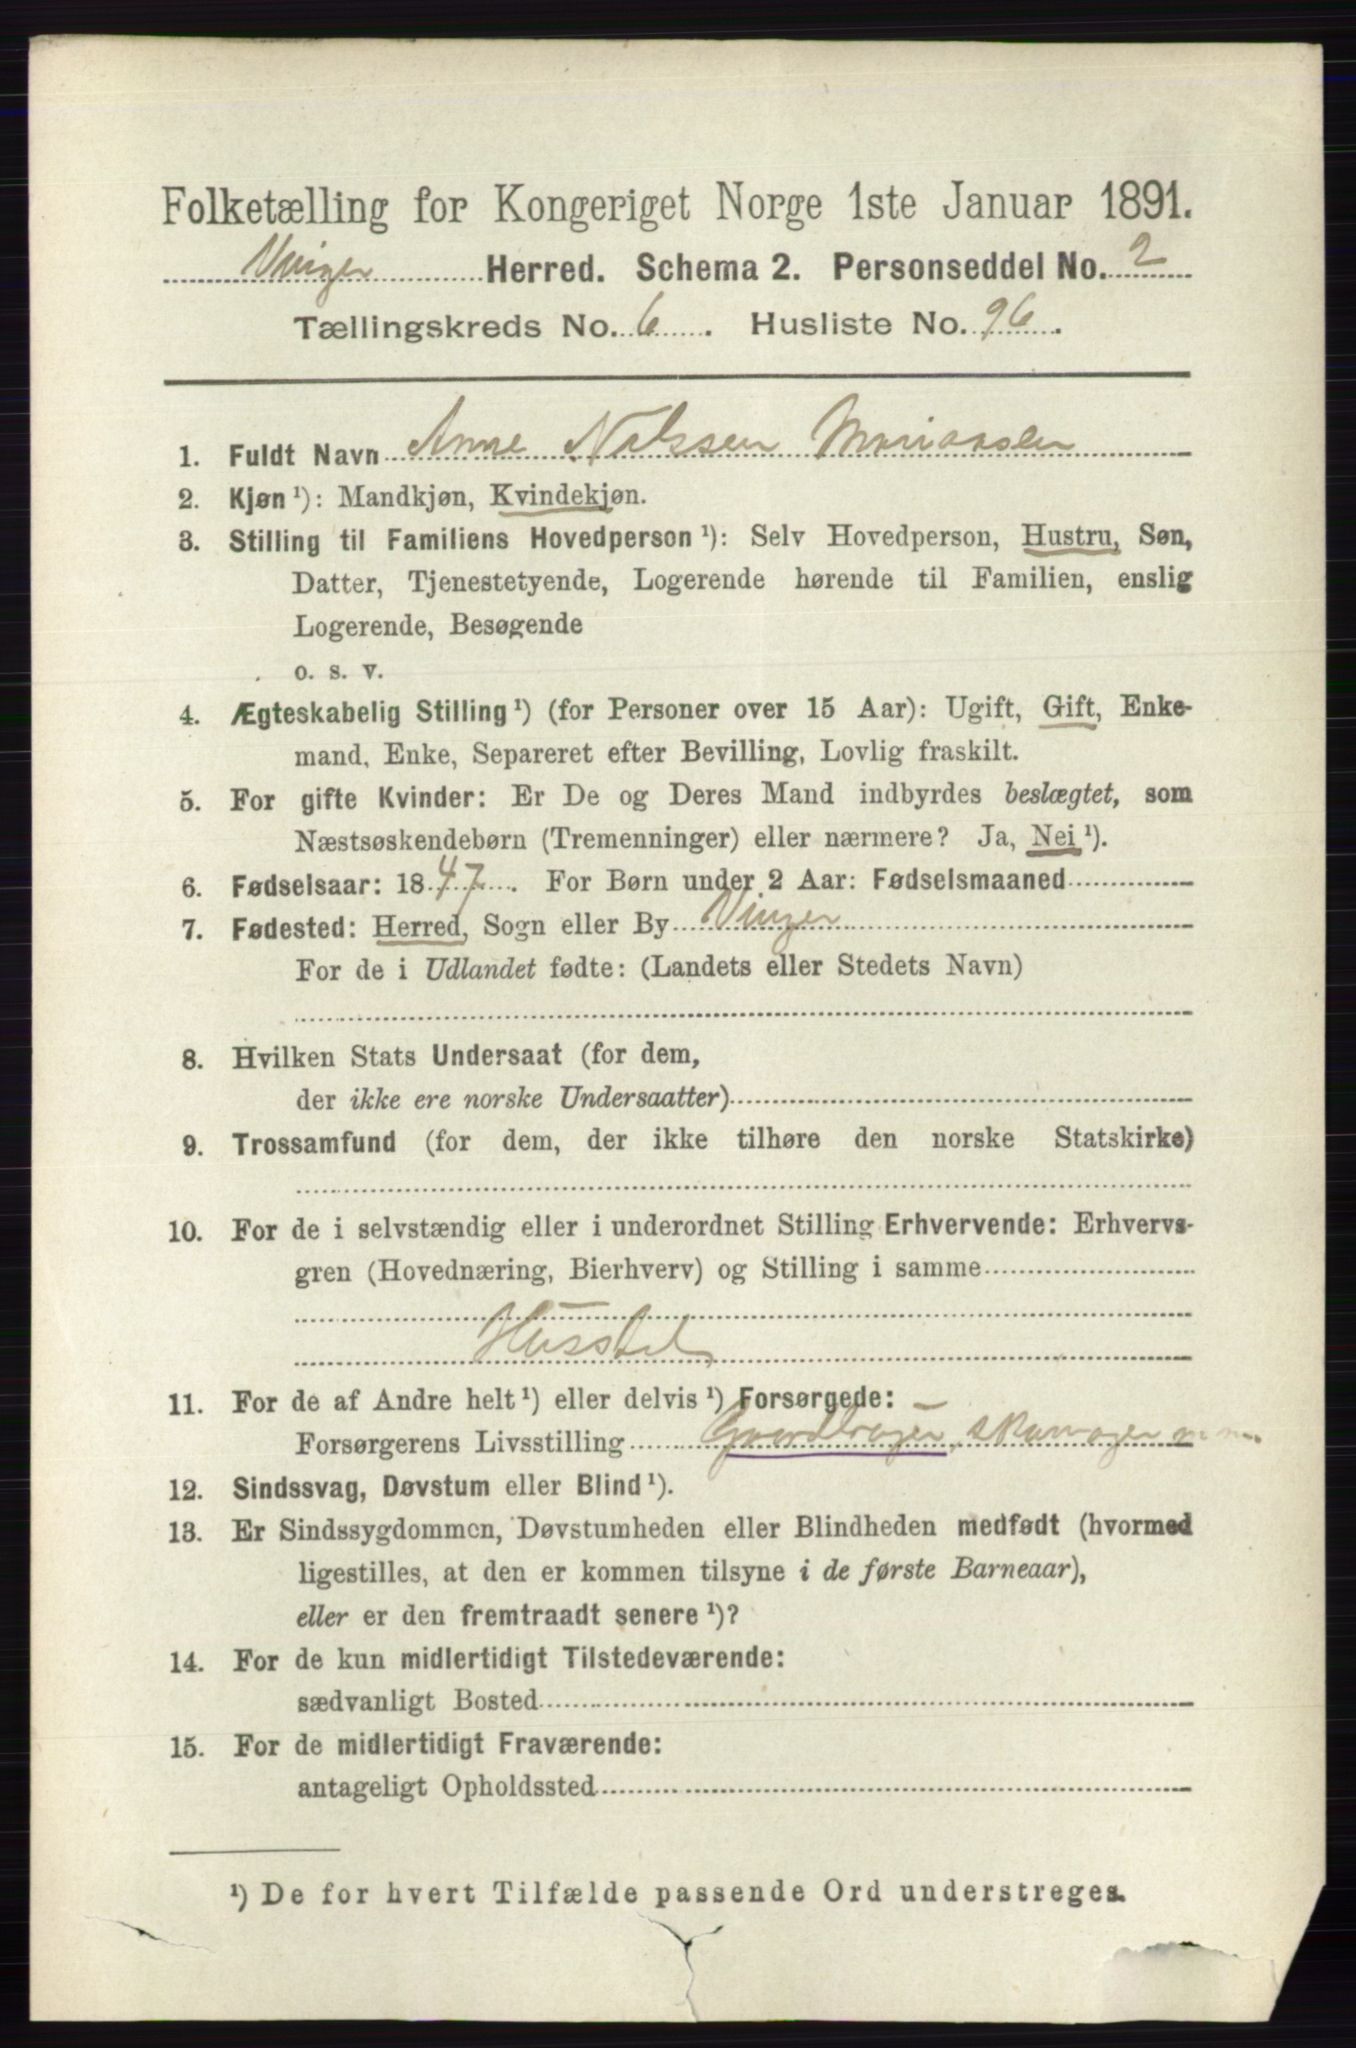 Folketælling for Kongeriget Norge 1ste Januar 1891.
Vinger Herred. Schema 2. Personseddel No. 2
Tællingskreds No. 6. Husliste No. 96.
1. Fuldt Navn Anne Nilssen
2. Kjøn ¹): Mandkjøn, Kvindekjøn.
3. Stilling til Familiens Hovedperson ¹): Selv Hovedperson, Hustru, Søn,
Datter, Tjenestetyende, Logerende hørende til Familien, enslig
Logerende, Besøgende
o. s. v.
4. Ægteskabelig Stilling ¹) (for Personer over 15 Aar): Ugift, Gift, Enke-
mand, Enke, Separeret efter Bevilling, Lovlig fraskilt.
5. For gifte Kvinder: Er De og Deres Mand indbyrdes beslægtet, som
Næstsøskendebørn (Tremenninger) eller nærmere? Ja, Nei ¹).
6. Fødselsaar: 1847. For Børn under 2 Aar: Fødselsmaaned
7. Fødested: Herred, Sogn eller By Vinger
For de i Udlandet fødte: (Landets eller Stedets Navn)
8. Hvilken Stats Undersaat (for dem,
der ikke ere norske Undersaatter)
9. Trossamfund (for dem, der ikke tilhøre den norske Statskirke)
10. For de i selvstændig eller i underordnet Stilling Erhvervende: Erhvervs-
gren (Hovednæring, Bierhverv) og Stilling i samme
Husstel
11. For de af Andre helt ¹) eller delvis ¹) Forsørgede:
Forsørgerens Livsstilling Gaardbruger, skomager m m.
12. Sindssvag, Døvstum eller Blind ¹).
13. Er Sindssygdommen, Døvstumheden eller Blindheden medfødt (hvormed
ligestilles, at den er kommen tilsyne i de første Barneaar),
eller er den fremtraadt senere ¹)?
14. For de kun midlertidigt Tilstedeværende:
sædvanligt Bosted
15. For de midlertidigt Fraværende:
antageligt Opholdssted
¹) De for hvert Tilfælde passende Ord understreges.